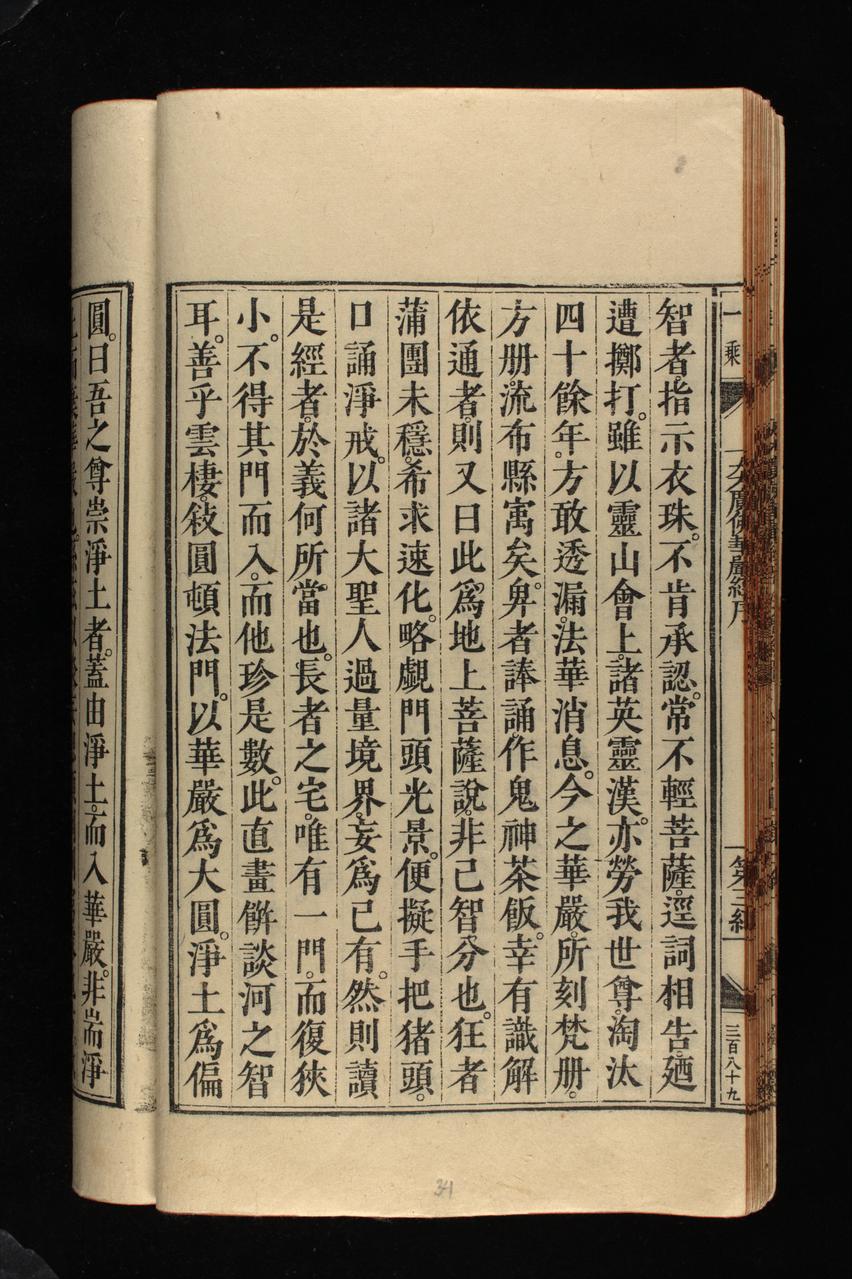 一乘
大方廣佛華嚴經序
第三經
三百八十九
智者。指示衣珠。不肯承認。常不輕菩薩。逕詞相告。廼
遭擲打。雖以靈山會上。諸英靈漢。亦勞我世尊。淘汰
四十餘年。方敢透漏。法華消息。今之華嚴。所刻梵册。
方册。流布縣寓矣。㢲者諱誦。作鬼神茶飯。幸有識解
依通者。則又曰此爲地上菩薩說。非己智分也。狂者
蒲團未穩。希求速化。略覷門頭光景。便擬手把猪頭。
口誦淨戒。以諸大聖人過量境界。妄爲已有。然則讀
是經者。於義何所當也。長者之宅。唯有一門。而復狹
小。不得其門而入。而他珍是數。此直畫餅談河之智
耳。善乎雲棲。敍圓頓法門。以華嚴爲大圓。淨土爲偏
圓。曰吾之尊崇淨土者。蓋由淨土。而入華嚴。非耑淨